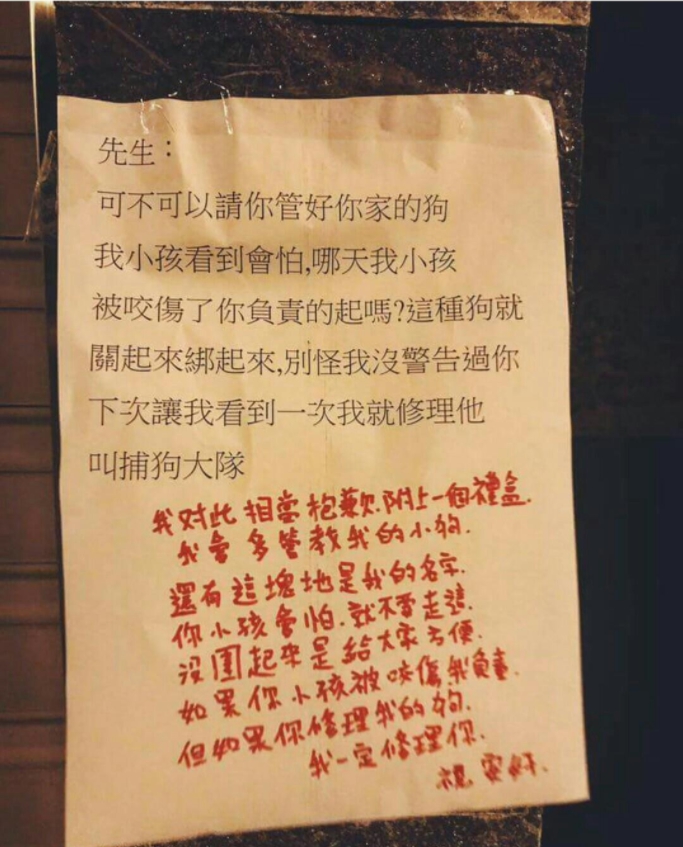 先生：
可不可以請你管好你家的狗
我小孩看到會怕,哪天我小孩
被咬傷了你負責的起嗎?這種狗就
關起來綁起來,別怪我沒警告過你
下次讓我看到一次我就修理他
叫捕狗大隊
我对此相當抱歉.附上一個禮盒.
我會多管教我的小狗.
還有這塊地是我的名字.
你小孩會怕.就不要走這.
沒圍起來是給大家方便.
如果你小孩被咬傷我負責.
但如果你修理我的狗.
我一定修理你.
祝 安好.